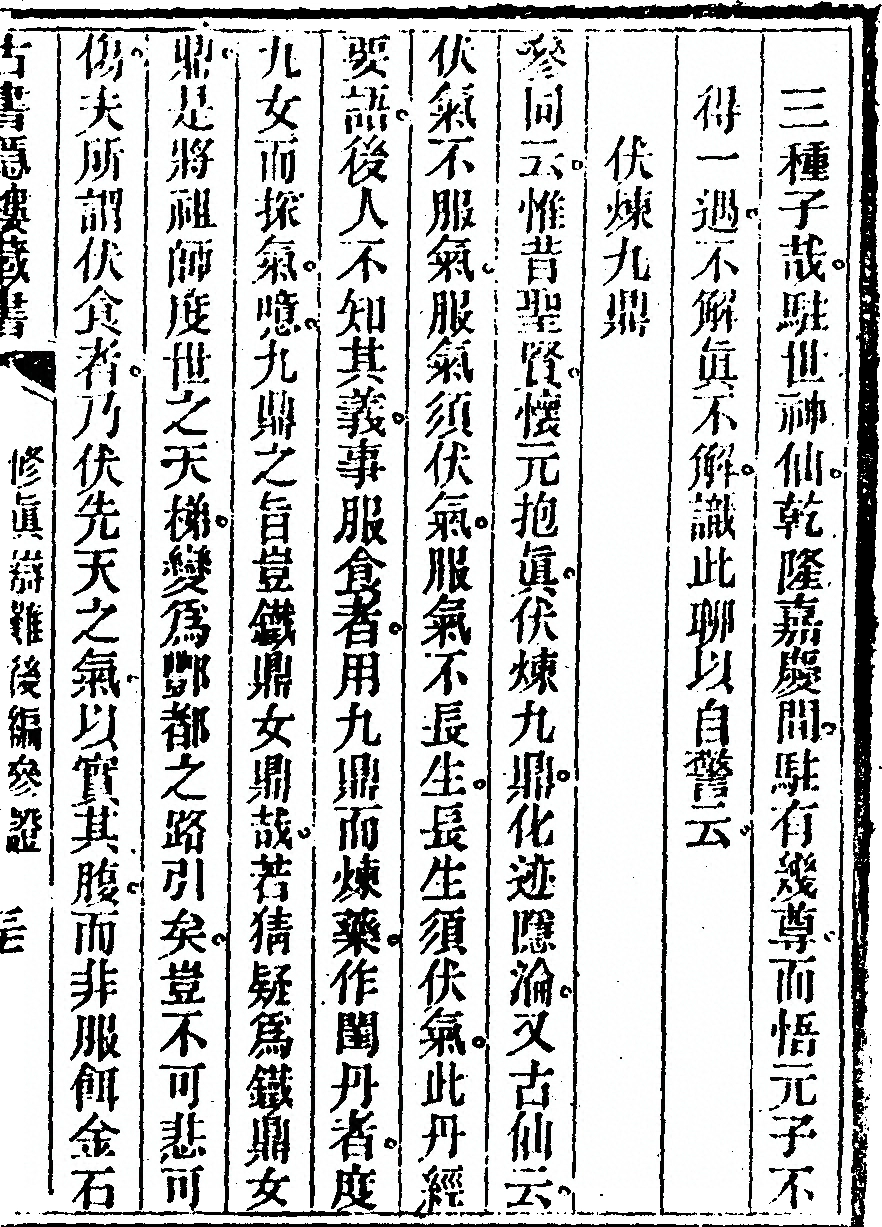 三種子哉駐世神仙乾隆嘉慶間駐有幾尊而悟元子不
得一遇不解眞不解識此聊以自警云
伏煉九鼎
參同云惟昔聖賢懷元抱眞伏煉九鼎化迹隱淪又古仙云
伏氣不服氣服氣須伏氣服氣不長生長生須伏氣此丹經
要語後人不知其義事服食者用九鼎而煉藥作閨丹者度
九女而採氣噫九鼎之旨豈鐵鼎女鼎哉若猜疑爲鐵鼎女
鼎是將祖師度世之天梯變爲酆都之路引矣豈不可悲可
傷夫所謂伏食者乃伏先天之氣以實其腹而非服餌金石
古書隱樓藏書
修眞辯難後編參證